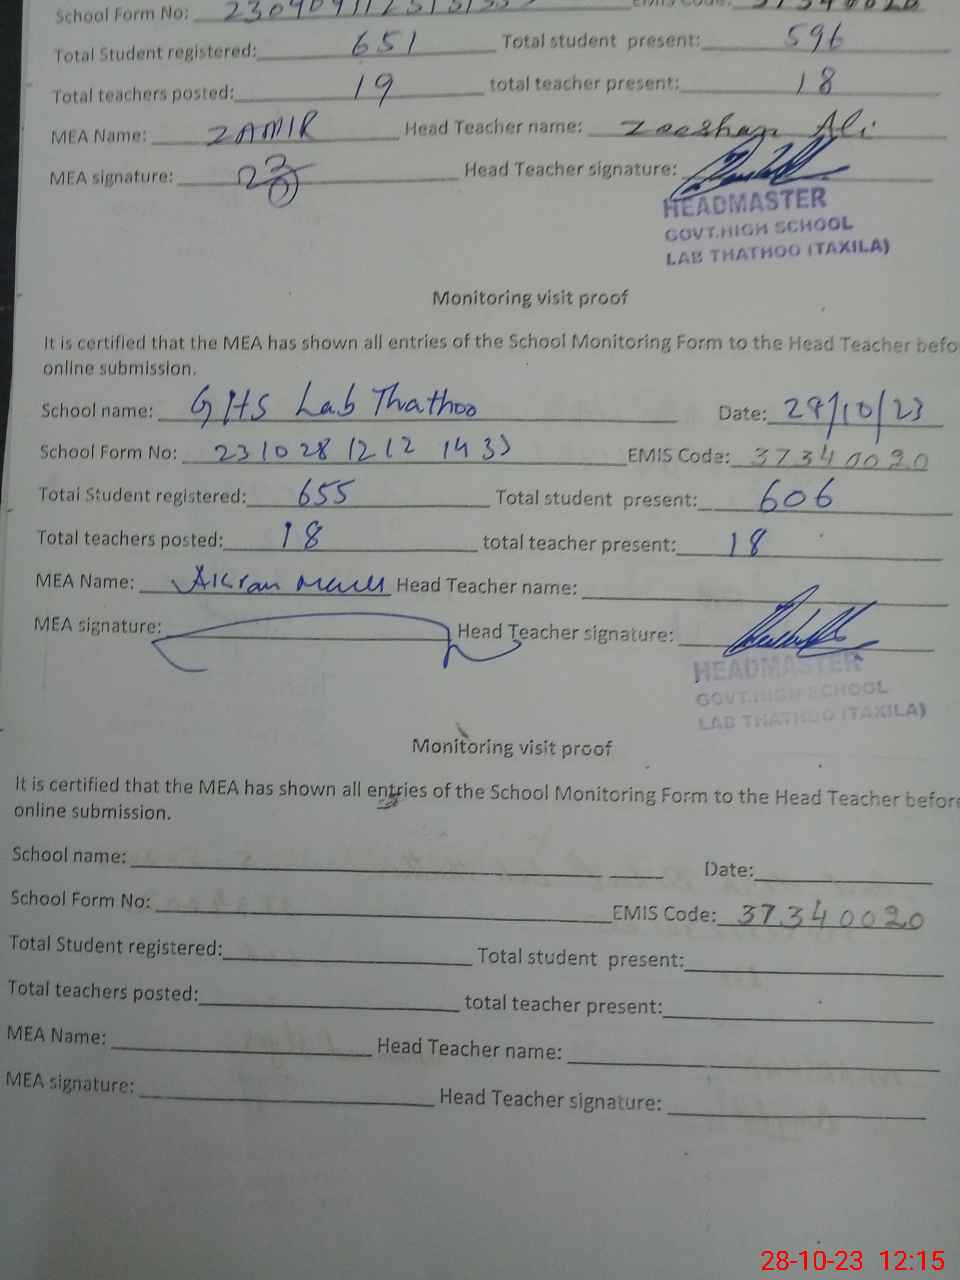 School Form No:
Total Student registered: 651 Total student present: 596
Total teachers posted: 19 total teacher present: 18
MEA Name: ZAMIR Head Teacher name: Zeeshan Ali
MEA signature: Head Teacher signature:
HEADMASTER
GOVT.HIGH SCHOOL
LAB THATHOO (TAXILA)
Monitoring visit proof
It is certified that the MEA has shown all entries of the School Monitoring Form to the Head Teacher befo
online submission.
School name: GHS Lab Thathoo Date: 28/10/23
School Form No: 231028 1212 1433 EMIS Code: 37340020
Total Student registered: 655 Total student present: 606
Total teachers posted: 18 total teacher present: 18
MEA Name: Akram Head Teacher name:
MEA signature: Head Teacher signature:
HEADMASTER
GOVT.HIGH SCHOOL
LAB THATHOO (TAXILA)
Monitoring visit proof
It is certified that the MEA has shown all entries of the School Monitoring Form to the Head Teacher before
online submission.
School name: Date:
School Form No: EMIS Code: 37340020
Total Student registered: Total student present:
Total teachers posted: total teacher present:
MEA Name: Head Teacher name:
MEA signature: Head Teacher signature:
28-10-23 12:15